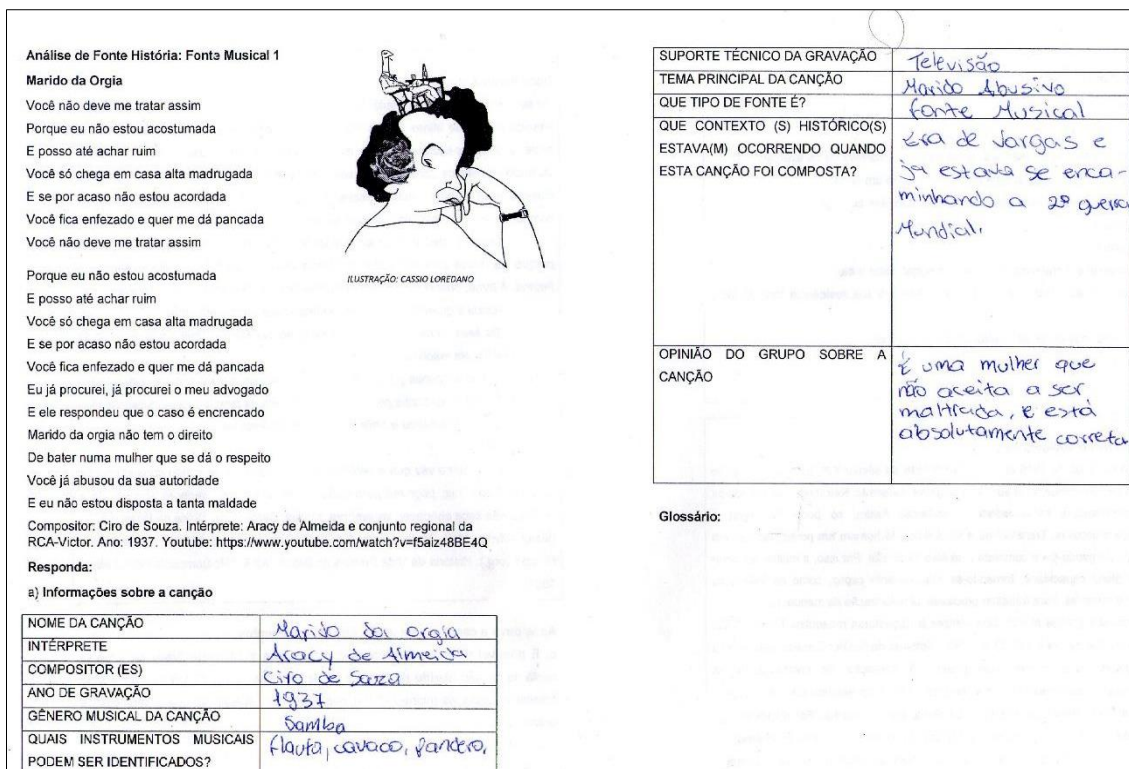 Análise de Fonte História: Fonte Musical 1
Marido da Orgia
Você não deve me tratar assim
Porque eu não estou acostumada
E posso até achar ruim
Você só chega em casa alta madrugada
E se por acaso não estou acordada
Você fica enfezado e quer me dá pancada
Você não deve me tratar assim
Porque eu não estou acostumada
E posso até achar ruim
Você só chega em casa alta madrugada
E se por acaso não estou acordada
Você fica enfezado e quer me dá pancada
Eu já procurei, já procurei o meu advogado
E ele respondeu que o caso é encrencado
Marido da orgia não tem o direito
De bater numa mulher que se dá o respeito
Você já abusou da sua autoridade
E eu não estou disposta a tanta maldade
ILUSTRAÇÃO: CASSIO LOREDANO
Compositor: Ciro de Souza. Intérprete: Aracy de Almeida e conjunto regional da
RCA-Victor. Ano: 1937. Youtube: https://www.youtube.com/watch?v=f5aiz48BE4Q
Responda:
a) Informações sobre a canção
NOME DA CANÇÃO Marido da orgia
INTÉRPRETE Aracy de Almeida
COMPOSITOR (ES) Ciro de Saza
ANO DE GRAVAÇÃO 1937
GÊNERO MUSICAL DA CANÇÃO Samba
QUAIS INSTRUMENTOS MUSICAIS
PODEM SER IDENTIFICADOS?
flauta, cavaco, pandero,
SUPORTE TÉCNICO DA GRAVAÇÃO Televisão
TEMA PRINCIPAL DA CANÇÃO Marido Abusivo
QUE TIPO DE FONTE É? fonte Musical
QUE CONTEXTO (S) HISTÓRICO(S)
ESTAVA(M) OCORRENDO QUANDO
ESTA CANÇÃO FOI COMPOSTA?
Era de Vargas e
ja estava se enca-
minhando a 2º guerra
Mundial.
OPINIÃO DO GRUPO SOBRE A
CANÇÃO
É uma mulher que
não aceita a ser
maltrada, e está
absolutamente correta
Glossário: